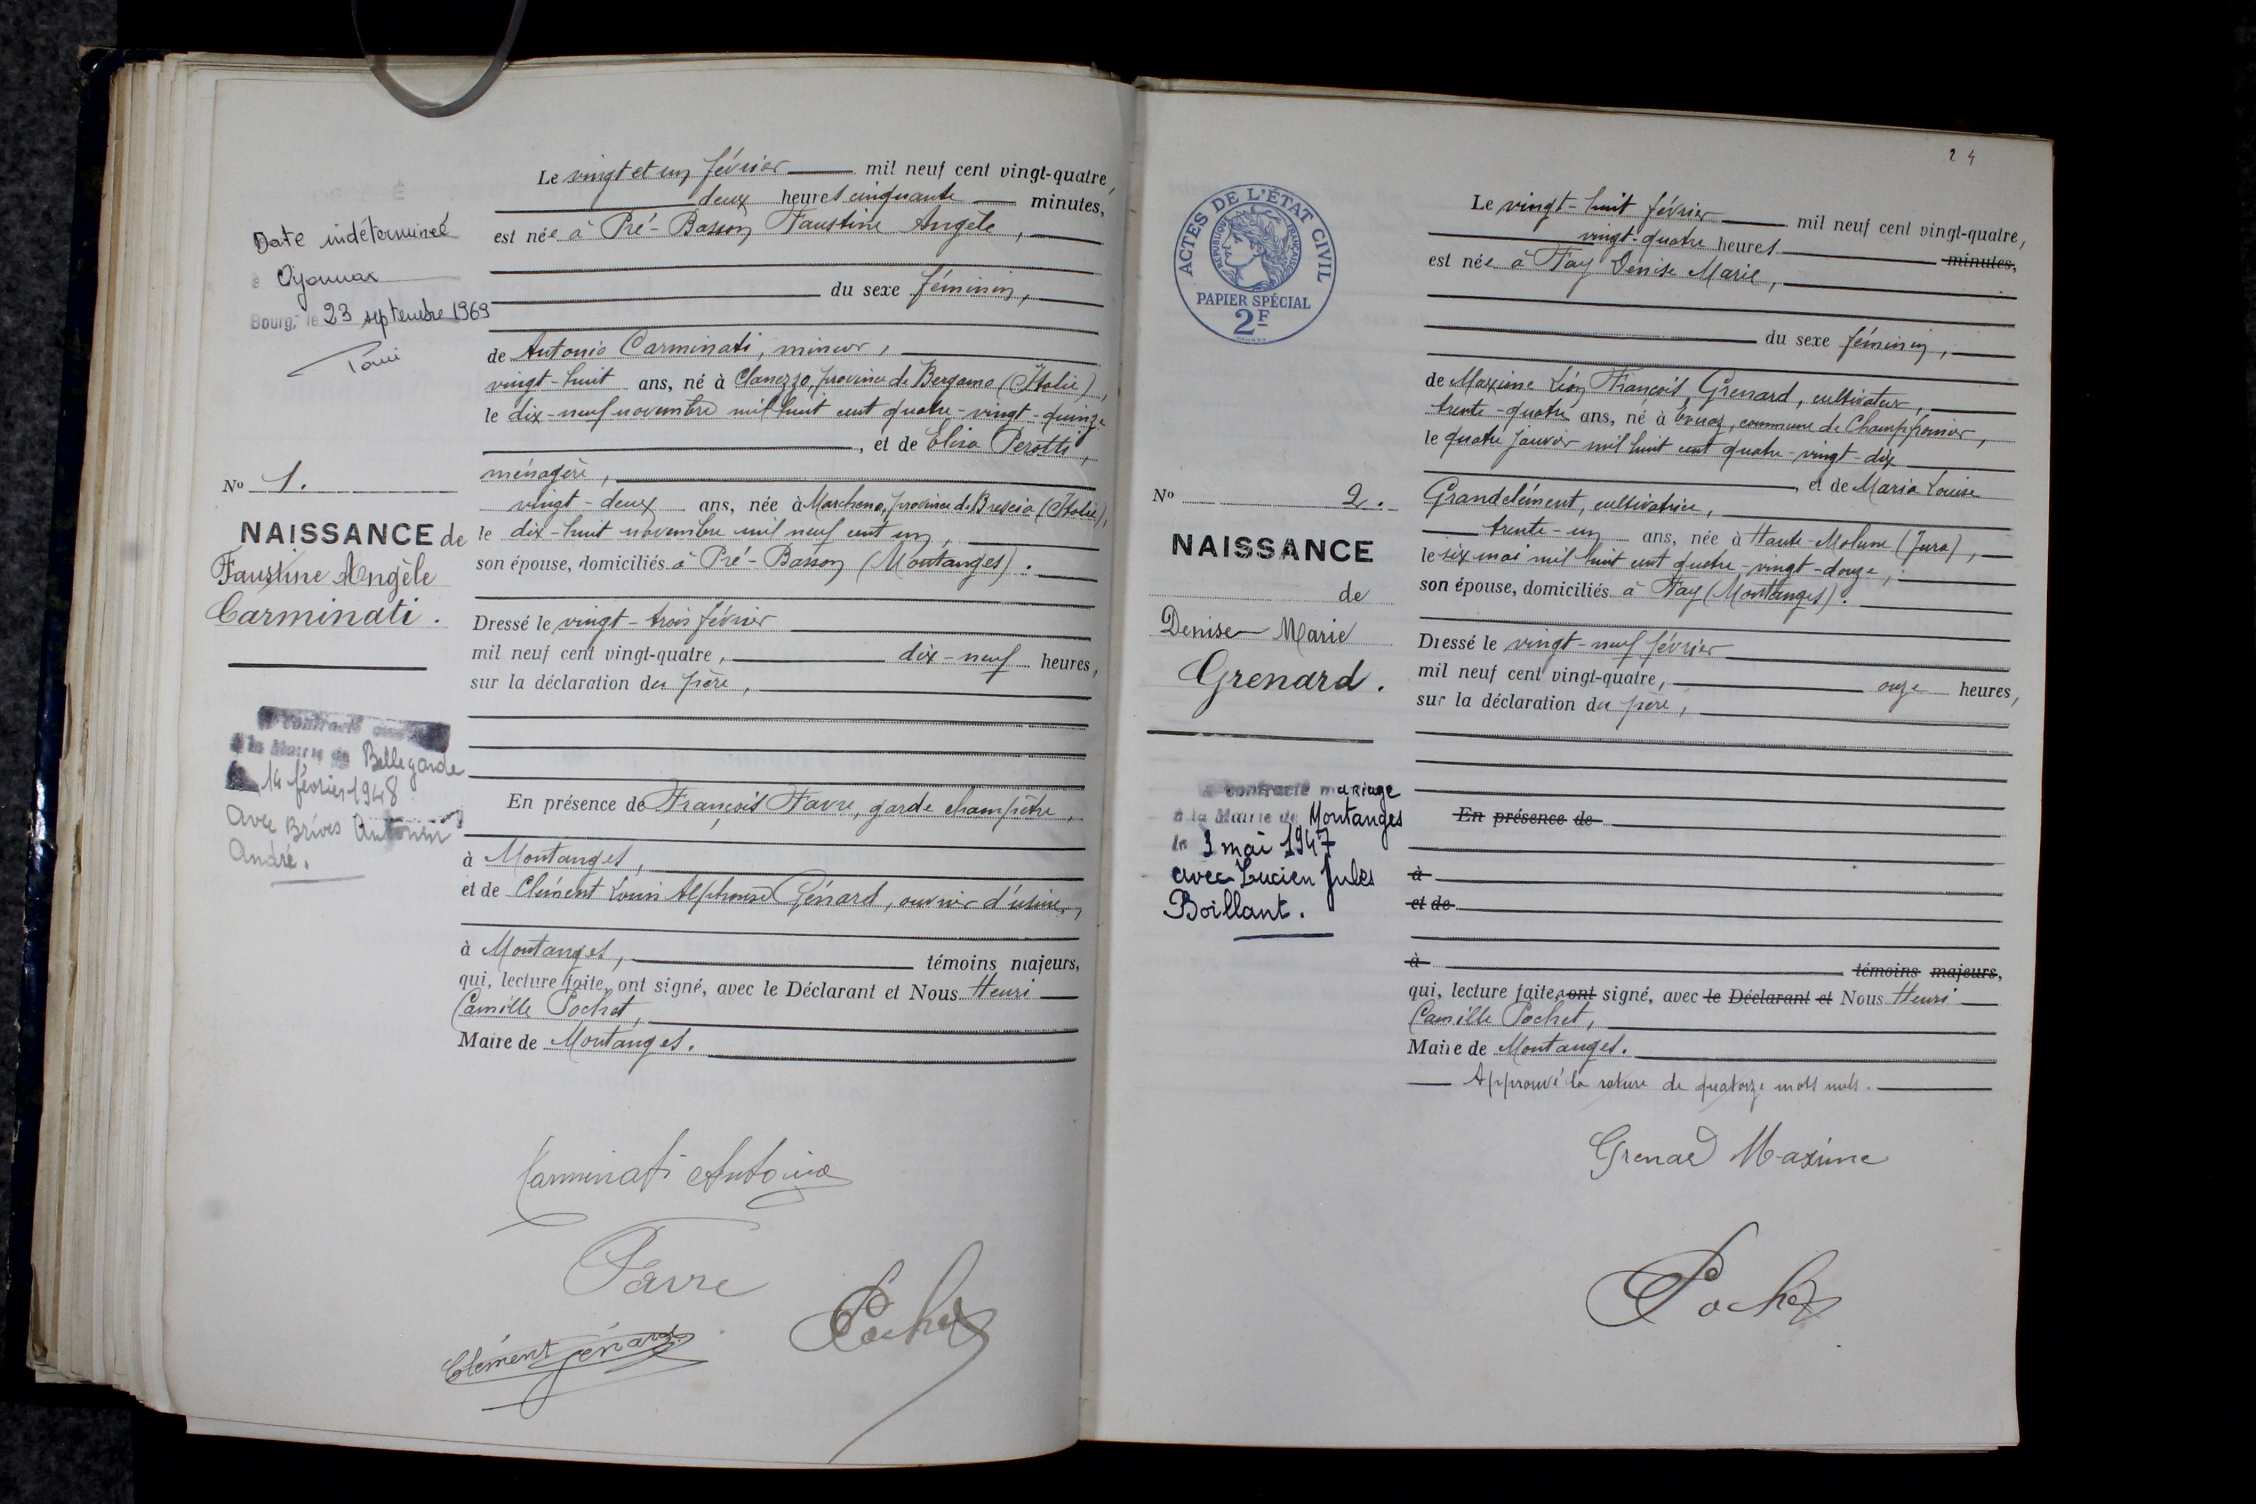 Le vingt et un février mil neuf cent vingt-quatre,
deux heures cinquante minutes,
est née à Pré-Basson Faustine Angèle,
du sexe féminin,
de Antonio Carminati, mineur,
vingt-huit ans, né à Clanezzo, province de Bergame (Italie),
le dix-neuf novembre mil huit cent quatre-vingt-quinze
, et de Elisa Perotti,
ménagère,
vingt-deux ans, née à Marcheno, province de Brescia (Italie),
le dix-huit novembre mil neuf cent un,
son épouse, domiciliés à Pré-Basson (Montanges).
Dressé le vingt-trois février
mil neuf cent vingt-quatre, dix-neuf heures,
sur la déclaration du père,
En présence de François Favre, garde champêtre,
à Montanges,
et de Clément Louis Alphonse Génard, ouvrier d'usine,
à Montanges, témoins majeurs,
qui, lecture faite, ont signé, avec le Déclarant et Nous Henri
Camille Pochet,
Maire de Montanges.
Carminati Antonio
Favre
Clément Génard
Pochet
Date indéterminée
à Oyonnax
Bourg, le 23 septembre 1969
No 1.
NAISSANCE de
Faustine Angèle
Carminati.
a contracté
à la Mairie de Bellegarde
14 février 1948
avec Brives Antonin
André.
24
ACTES DE L'ÉTAT CIVIL
REPUBLIQUE FRANÇAISE
PAPIER SPÉCIAL
2F
No 2.
NAISSANCE
de
Denise Marie
Grenard.
a contracté mariage
à la Mairie de Montanges
le 3 mai 1947
avec Lucien Jules
Boillant.
Le vingt-huit février mil neuf cent vingt-quatre,
vingt-quatre heures minutes,
est née à Fay Denise Marie,
du sexe féminin,
de Maxime Léon François Grenard, cultivateur,
trente-quatre ans, né à commune de Champfromier,
le quatre janvier mil huit cent quatre-vingt-dix
, et de Maria Louise
Grandclément, cultivatrice,
trente-un ans, née à Haute-Molune (Jura),
le six mai mil huit cent quatre-vingt-douze,
son épouse, domiciliés à Fay (Montanges).
Dressé le vingt-neuf février
mil neuf cent vingt-quatre, onze heures,
sur la déclaration du père,
En présence de
à
et de
à témoins majeurs,
qui, lecture faite, ont signé, avec le Déclarant et Nous Henri
Camille Pochet,
Maire de Montanges.
Approuvé la rature de quatorze mots nuls.
Grenard Maxime
Pochet